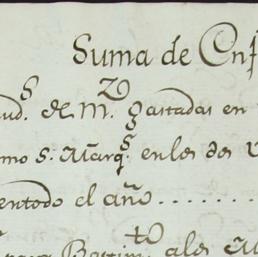 Suma de Enf
ud.s de M.Z gastadas en
mo S. Marq.s en los dos
entodo el año ........
para Bastim.to a los